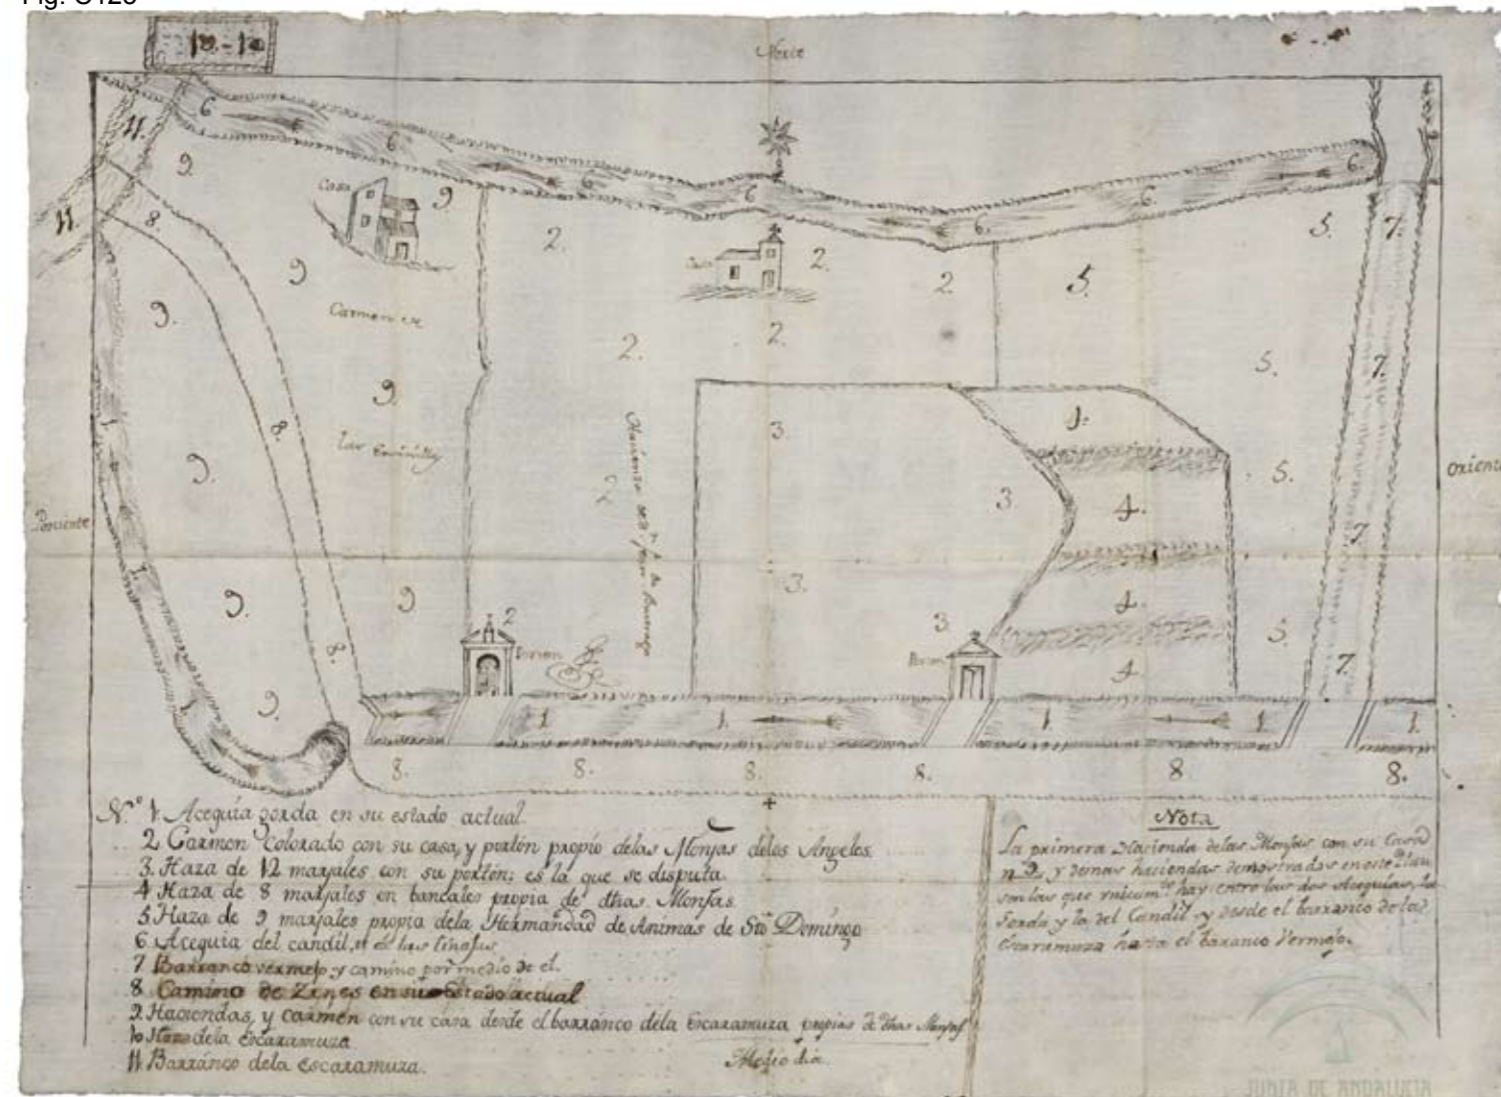 Norte
10.-10
11.
6
6.
6.
6
6.
6.
6.
11.
9.
8.
Casa
9
2.
Casa
2.
5.
7.
9
9.
Carmen de
2
5.
2.
2.
5.
7.
9.
8.
3.
4.
9.
3
4.
5.
Oriente
Poniente
7.
1
9.
9
3.
4.
5.
2
Porton
3.
Porton
8.
4
7.
9.
1
1.
1.
1.
1.
1.
8.
8.
8.
8.
8
8.
N.º 1. Acequia gorda en su estado actual.
2 Carmen Colorado con su casa, y portón propio delas Monjas delos Angeles.
3. Haza de 12 marjales con su portón; es la que se disputa.
4 Haza de 8 marjales en bancales propia de dhas. Monjas.
5. Haza de 9 marjales propia dela Hermandad de Animas de Sto Domingo
6. Acequia del candil, ó de las
7 Barranco vermejo y camino por medio de el.
8 Camino de Zenes en su estado actual
9. Haciendas, y carmen con su casa desde el barránco dela Escaramuza propias de dhas Monjas
10 dela Escaramuza
11. Barránco dela Escaramuza.
Medio dia.
Nota
La primera Hacienda delas Monjas con su Casa
n. 9. y demas haciendas demostradas en este Plan
son las que unicamte. hay entre las dos Acequias, la
Gorda y la del Candil, y desde el barranco de la
Escaramuza hasta el barranco Vermejo.
JUNTA DE ANDALUCIA